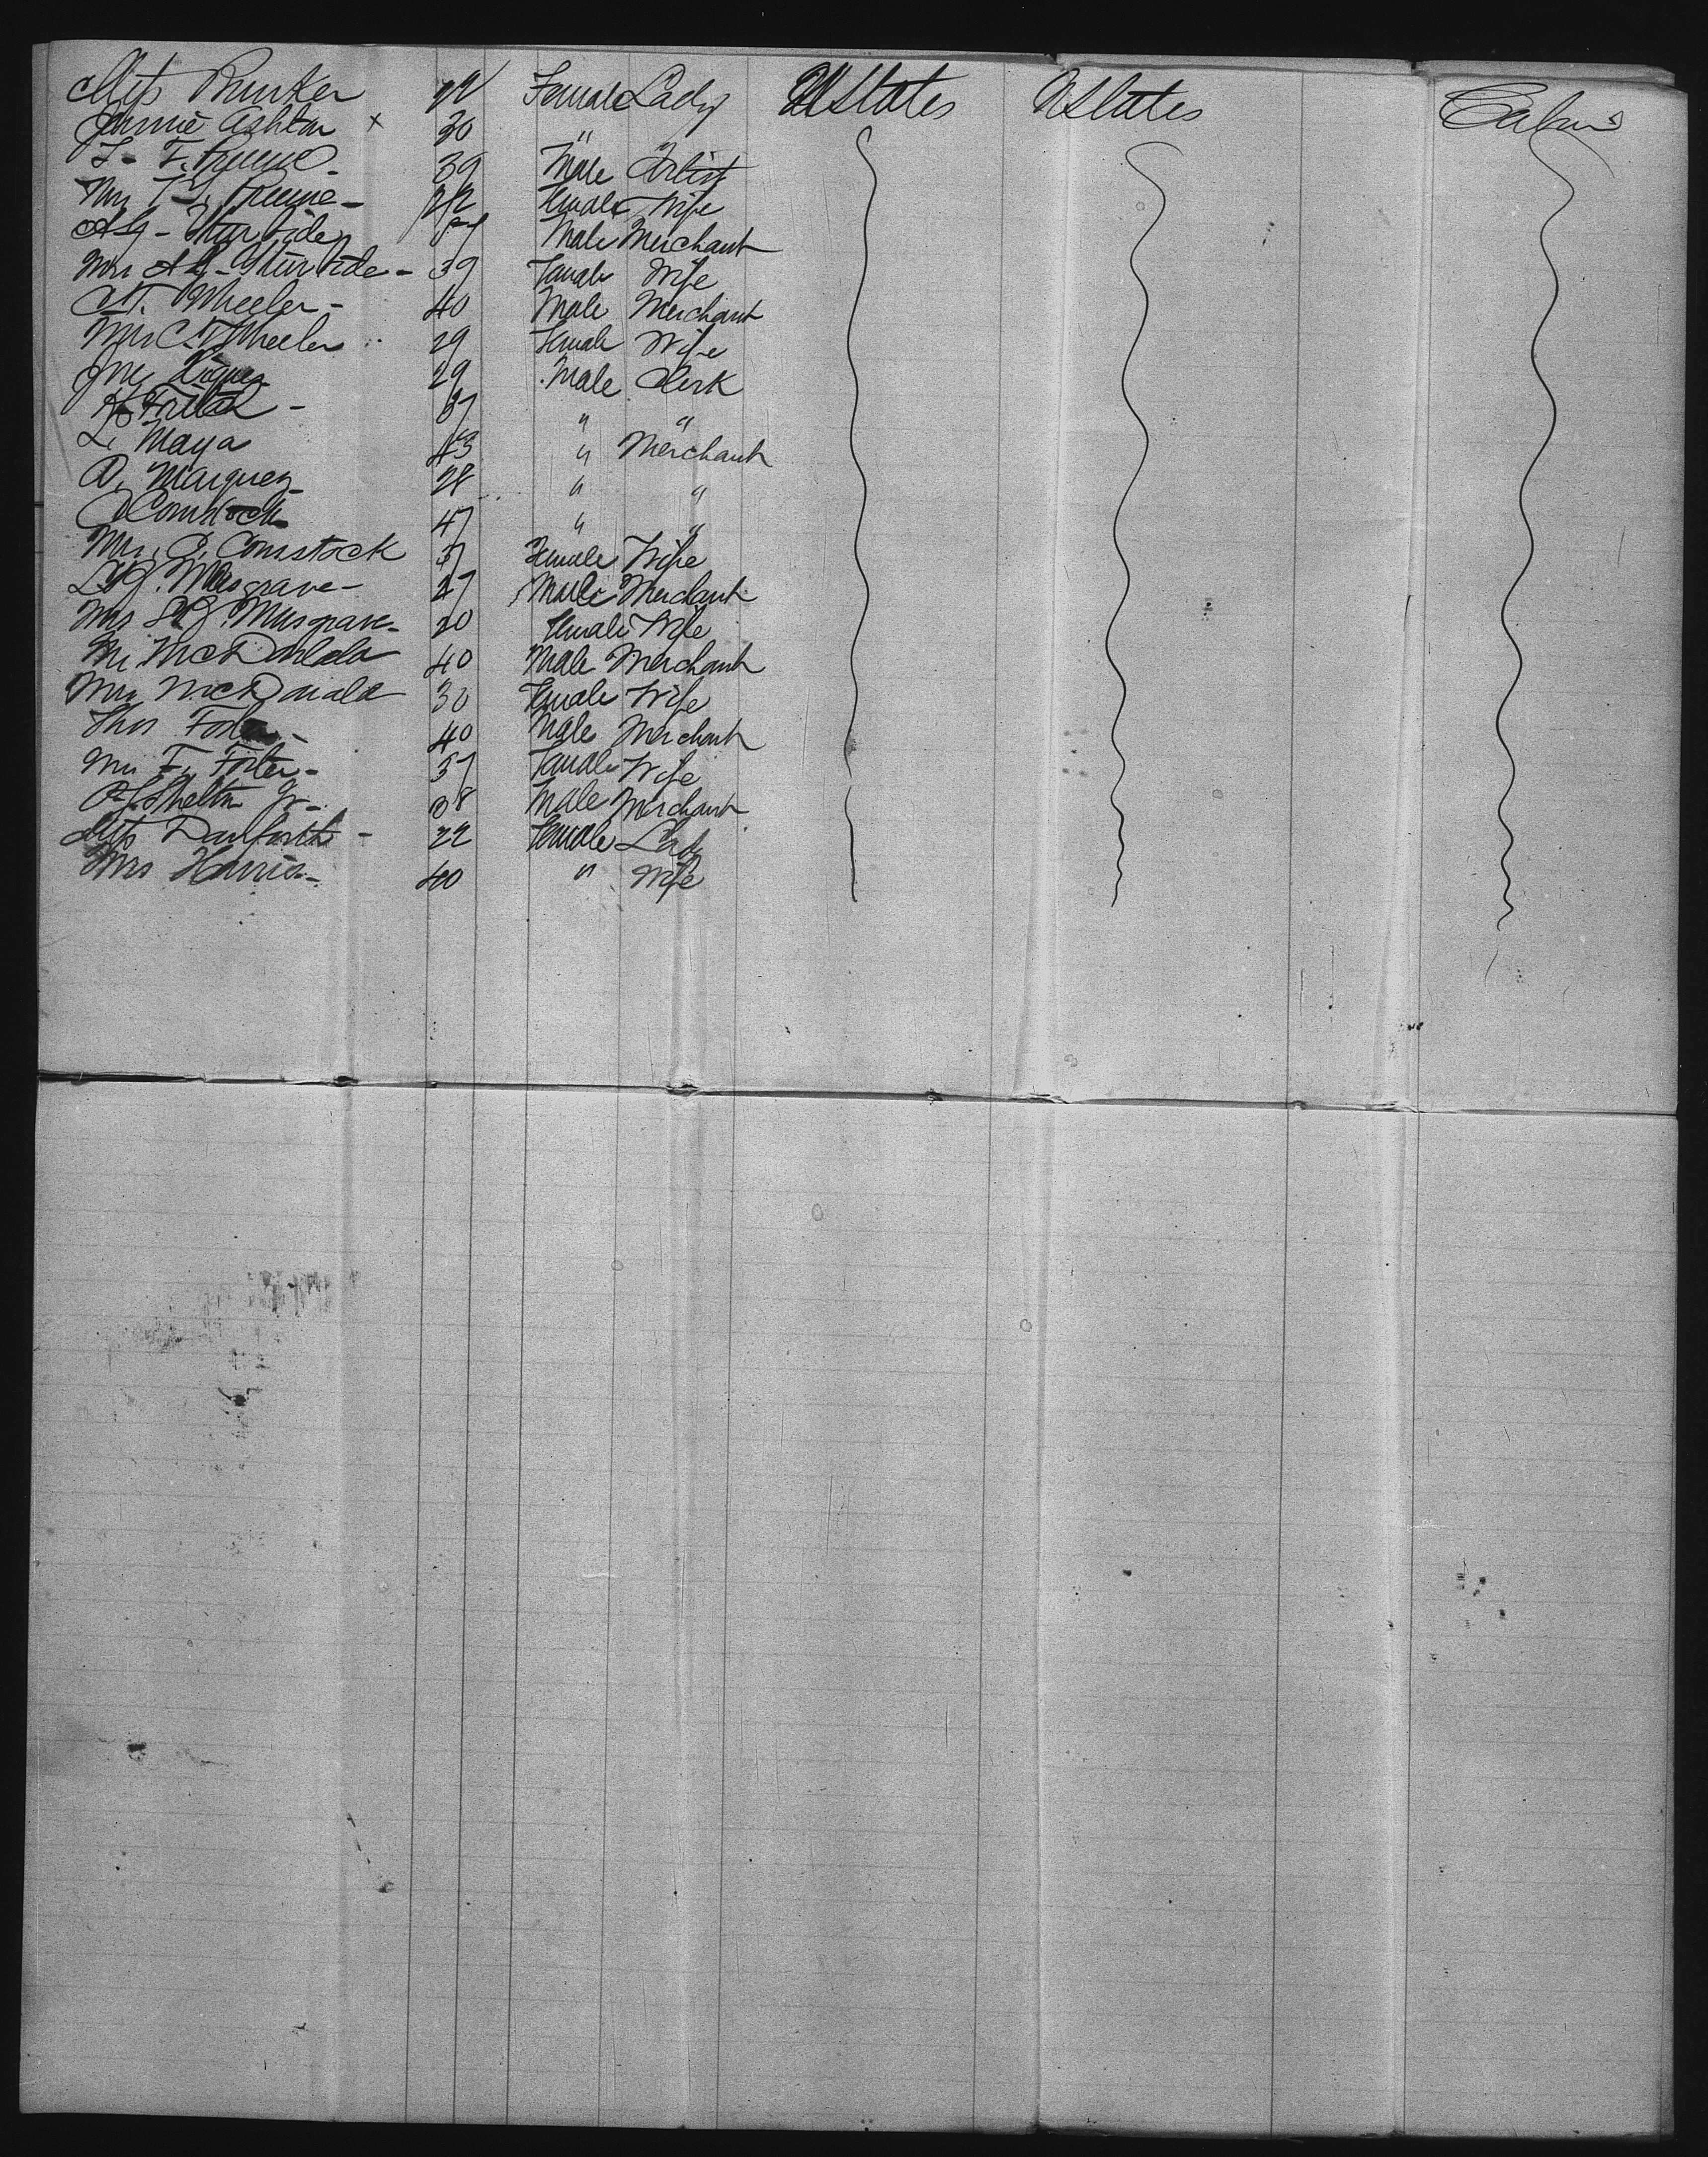 Miss Bunker 22 Female Lady U States U States Cabin
Jennie Ashton x 30 " "
39 Male Artist
Mrs 22 Female Wife
Male Merchant
Mrs A G - Iturbide - 39 Female Wife
C.T. Wheeler - 40 Male Merchant
Mrs C.T. Wheeler 29 Female Wife
29 Male Clerk
37 " "
L. Maya 43 " Merchant
D. Marquez 28 " "
Comstock 47 " "
Mrs. C. Comstock 37 Female Wife
Musgrave - 27 Male Merchant
Mrs Musgrave - 20 Female Wife
Mr McDonald 40 Male Merchant
Mrs McDonald 30 Female Wife
Thos Foster - 40 Male Merchant
Mrs T. Foster - 37 Female Wife
Shelton Jr - 38 Male Merchant
Miss Danforth - 22 Female Lady
Mrs Harris - 40 " Wife